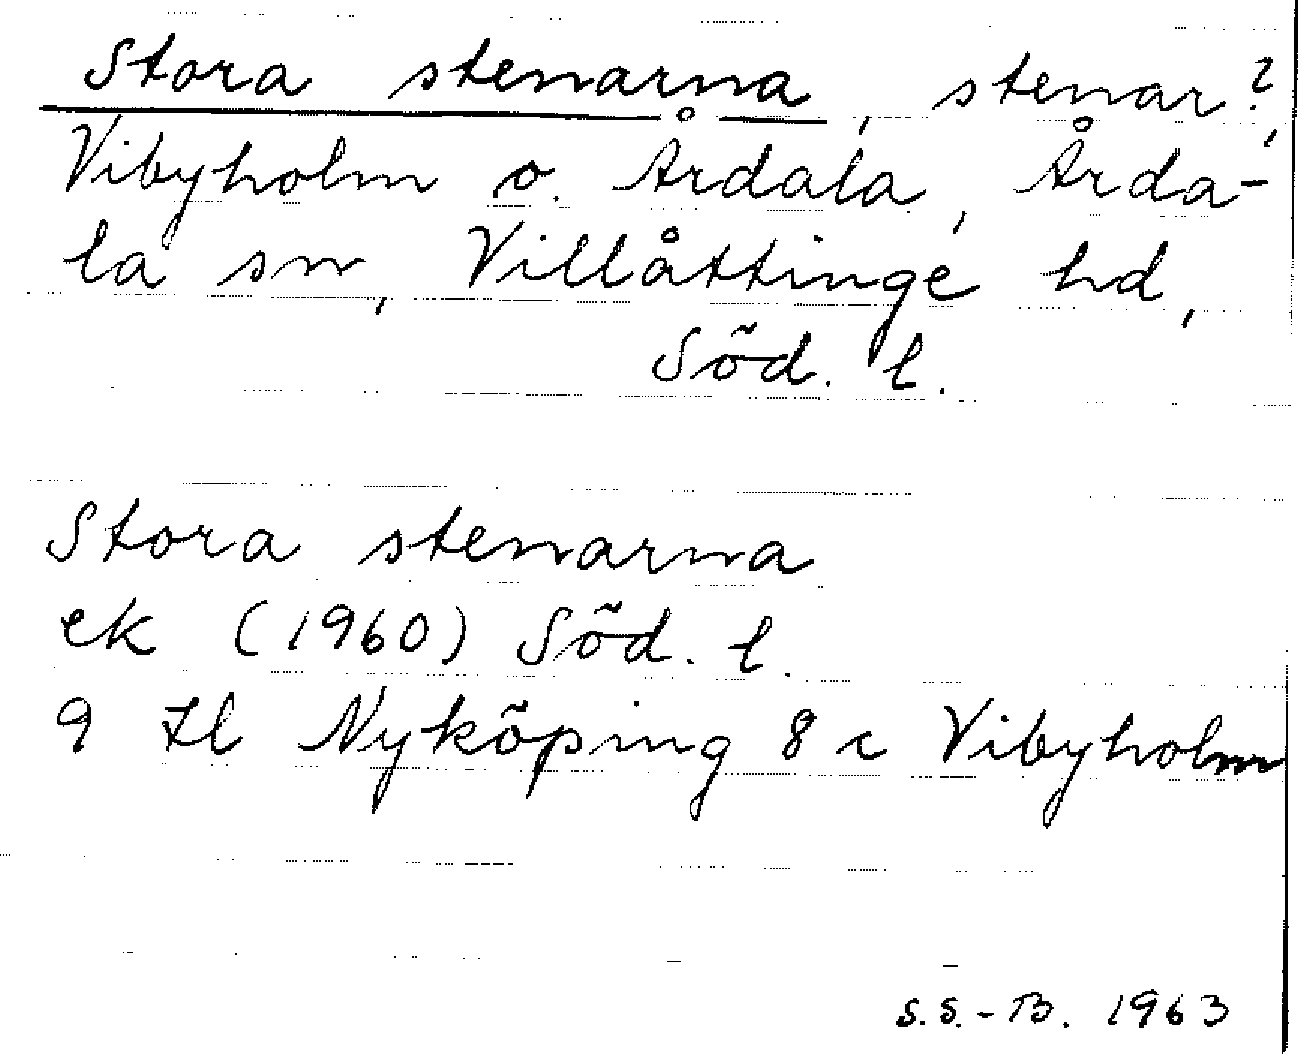 Stora stenarna, stenar?,
Vibyholm o. Årdala, Årda-
la sn, Villåttinge hd,
Söd. l.
Stora stenarna
ek (1960) Söd. l.
9 Hl Nyköping 8 c Vibyholm
S.S.-B. 1963